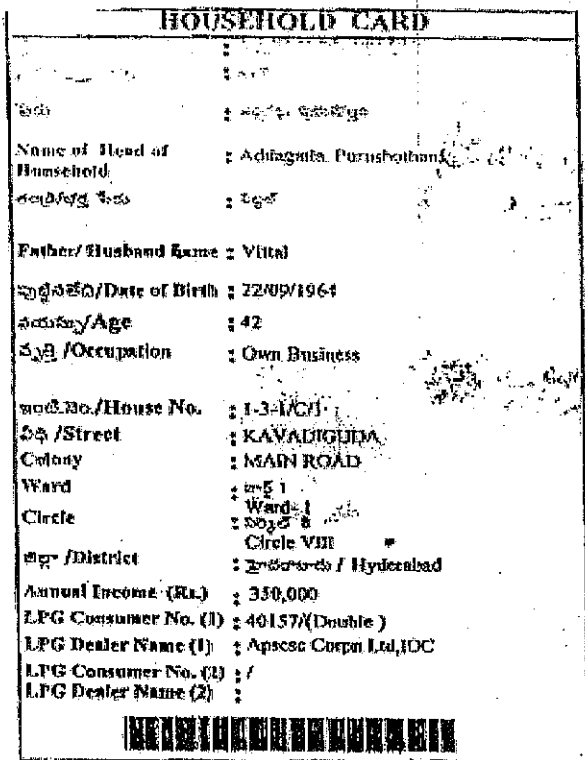 HOUSEHOLD CARD
Name of Head of : Purushotham
Household
Father/ Husband Name : Vittal
పుట్టినతేది/Date of Birth : 22/09/1964
వయస్సు/Age : 42
వృత్తి /Occupation : Own Business
ఇంటి.నెం./House No. : 1-3-1/C/1
వీధి /Street : KAVADIGUDA
Colony : MAIN ROAD
Ward : వార్డ్ 1
Ward- 1
Circle : సర్కిల్ 8
Circle VIII
జిల్లా /District : హైదరాబాదు / Hyderabad
Annual Income (Rs.) : 350,000
LPG Consumer No. (1) : 40157/(Double )
LPG Dealer Name (1) : Apscsc Corpn Ltd,IOC
LPG Consumer No. (2) : /
LPG Dealer Name (2) :